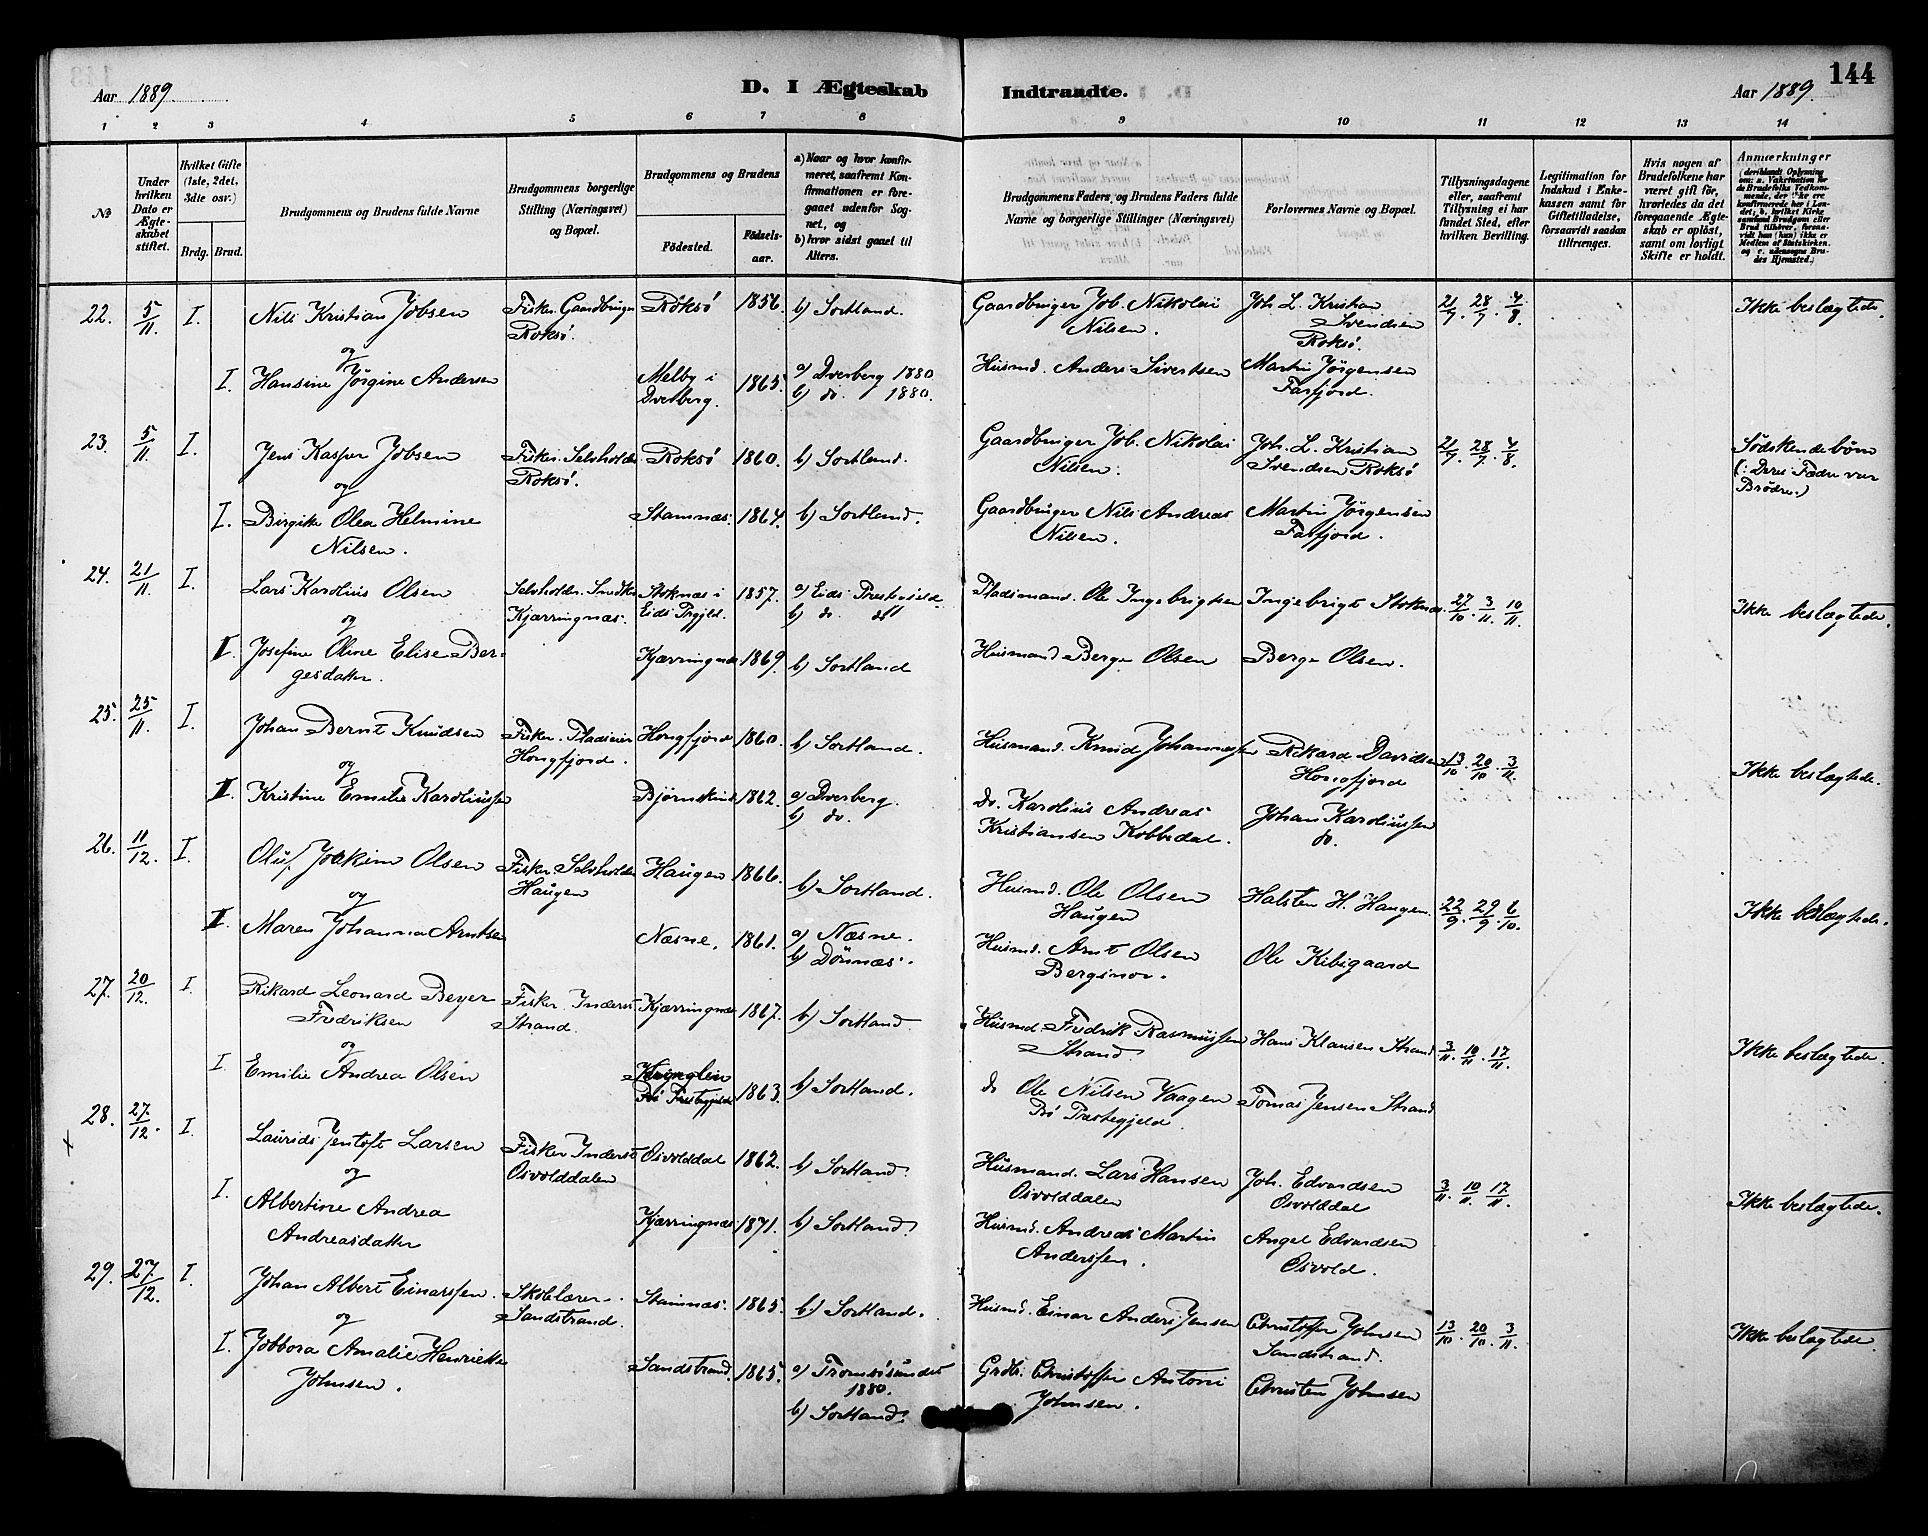 Aar 1889
D. I Ægteskab Indtraadte.
Aar 1889.
144
1 2 3 4 5 6 7 8 9 10 11 12 13 14
№
Under hvilken Dato er Ægteskabet stiftet.
Hvilket Gifte (1ste, 2det, 3die osv.)
Brdg. Brud.
Brudgommens og Brudens fulde Navne
Brudgommens borgerlige Stilling (Næringsvei) og Bopæl.
Brudgommens og Brudens
Fødested.
Fødselsaar.
a) Naar og hvor konfirmeret, saafremt Konfirmationen er foregaaet udenfor Sognet, og
b) hvor sidst gaaet til Alters.
Brudgommens Faders og Brudens Faders fulde Navne og borgerlige Stillinger (Næringsvei)
Forlovernes Navne og Bopæl.
Tillysningsdagene eller, saafremt Tillysning ei har fundet Sted, efter hvilken Bevilling.
Legitimation for Indskud i Enkekassen samt for Giftetilladelse, forsaavidt saadan tiltrænges.
Hvis nogen af Brudefolkene har været gift før, hvorledes da det foregaaende Ægteskab er opløst, samt om lovligt Skifte er holdt.
Anmærkninger
22. 5/11 I. Nils Kristian Jobsen Fisker. Gaardbruger Roksö. Roksö 1856. b) Sortland. Gaardbruger Job. Nikolai Nilsen. Joh. L. Kristian Svendsen Roksö. 21/7. 28/7. 4/8. Ikke beslægtede.
og
I. Hansine Jörgine Andersen Melby i Dverberg. 1865. a) Dverberg 1880 b) do. 1880. Husmd. Anders Sivertsen Martin Jörgensen Farfjord.
23. 5/11 I. Jens Kasper Jobsen Fisker. Selvholder Roksö. Roksö 1860. b) Sortland. Gaardbruger Job. Nikolai Nilsen. Joh. L. Kristian Svendsen Roksö 21/7. 28/7. 4/8. Södskendebörn (: Deres Fædre var Brödre.)
og
I. Birgitte Olea Helmine Nilsen. Stamnæs. 1864. b) Sortland. Gaardbruger Nils Andreas Nilsen. Martin Jörgensen Farfjord.
24. 21/11 I. Lars Karolius Olsen Selvholder. Snedker Kjærringnæs. Stoknæs i Eids Prgjld. 1857. a) Eids Prestegjeld b) do. do Pladsmand. Ole Ingebrigtsen Ingebrigt Stoknæs. 27/10. 3/11. 10/11. Ikke beslægtede.
og
I. Josefine Oline Elise Bergesdatter. Kjærringnæs 1869. b) Sortland Husmand Berge Olsen Berge Olsen.
25. 25/11. I. Johan Bernt Knudsen Fisker. Pladseier Hongfjord. Hongfjord 1860. b) Sortland. Husmand. Knud Johannessen Rikard Davidsen Hongfjord 13/10. 20/10. 3/11. Ikke beslægtede.
og
I. Kristine Emilie Karoliussen Björnskin 1862. a) Dverberg. b) do. do. Karolius Andreas Kristiansen Kobbedal. Johan Karoliussen do.
26. 11/12. I. Oluf Joakim Olsen Fisker Selvholder Haugen Haugen 1866. b) Sortland. Husmd. Ole Olsen Haugen Halsten H. Haugen. 22/9. 29/9. 6/10. Ikke beslægtede.
og
I. Maren Johanna Arntsen Næsne. 1861. a) Næsne. b) Dönnæs. Husmd. Arnt Olsen Ole Kibigaard
27. 20/12. I. Rikard Leonard Beyer Fredriksen Fisker. Inderst Strand. Kjærringnæs 1867. b) Sortland. Husmd. Fredrik Rasmussen Strand. Hans Klausen Strand 3/11. 10/11. 17/11. Ikke beslægtede.
og
I. Emilie Andrea Olsen Bö Prestegjeld 1863. b) Sortland. do Ole Nilsen Vaagen Bö Præstegjeld. Tomas Jensen Strand
28. 27/12. I. Laurids Jentoft Larsen Fisker Inderst Osvolddalen Osvolddal 1862. b) Sortland. Husmand. Lars Hansen Osvolddalen Joh. Edvardsen Osvolddal 3/11. 10/11. 17/11. Ikke beslægtede.
og
I. Albertine Andrea Andreasdatter Kjærringnæs 1871. b) Sortland. Husmd. Andreas Martin Anderssen. Angel Edvardsen Osvold.
29. 27/12. I. Johan Albert Einarssen. Skolelærer. Sandstrand. Stamnæs. 1865. b.) Sortland. Husmd. Einar Anders Jensen Christoffer Johnsen Sandstrand. 13/10. 20/10. 3/11. Ikke beslægtede.
og
I. Jobbora Amalie Henriette Johnsen. Sandstrand. 1865. a) Tromsösundet 1880. b) Sortland. Grdb. Christoffer Antoni Johnsen. Christen Johnsen